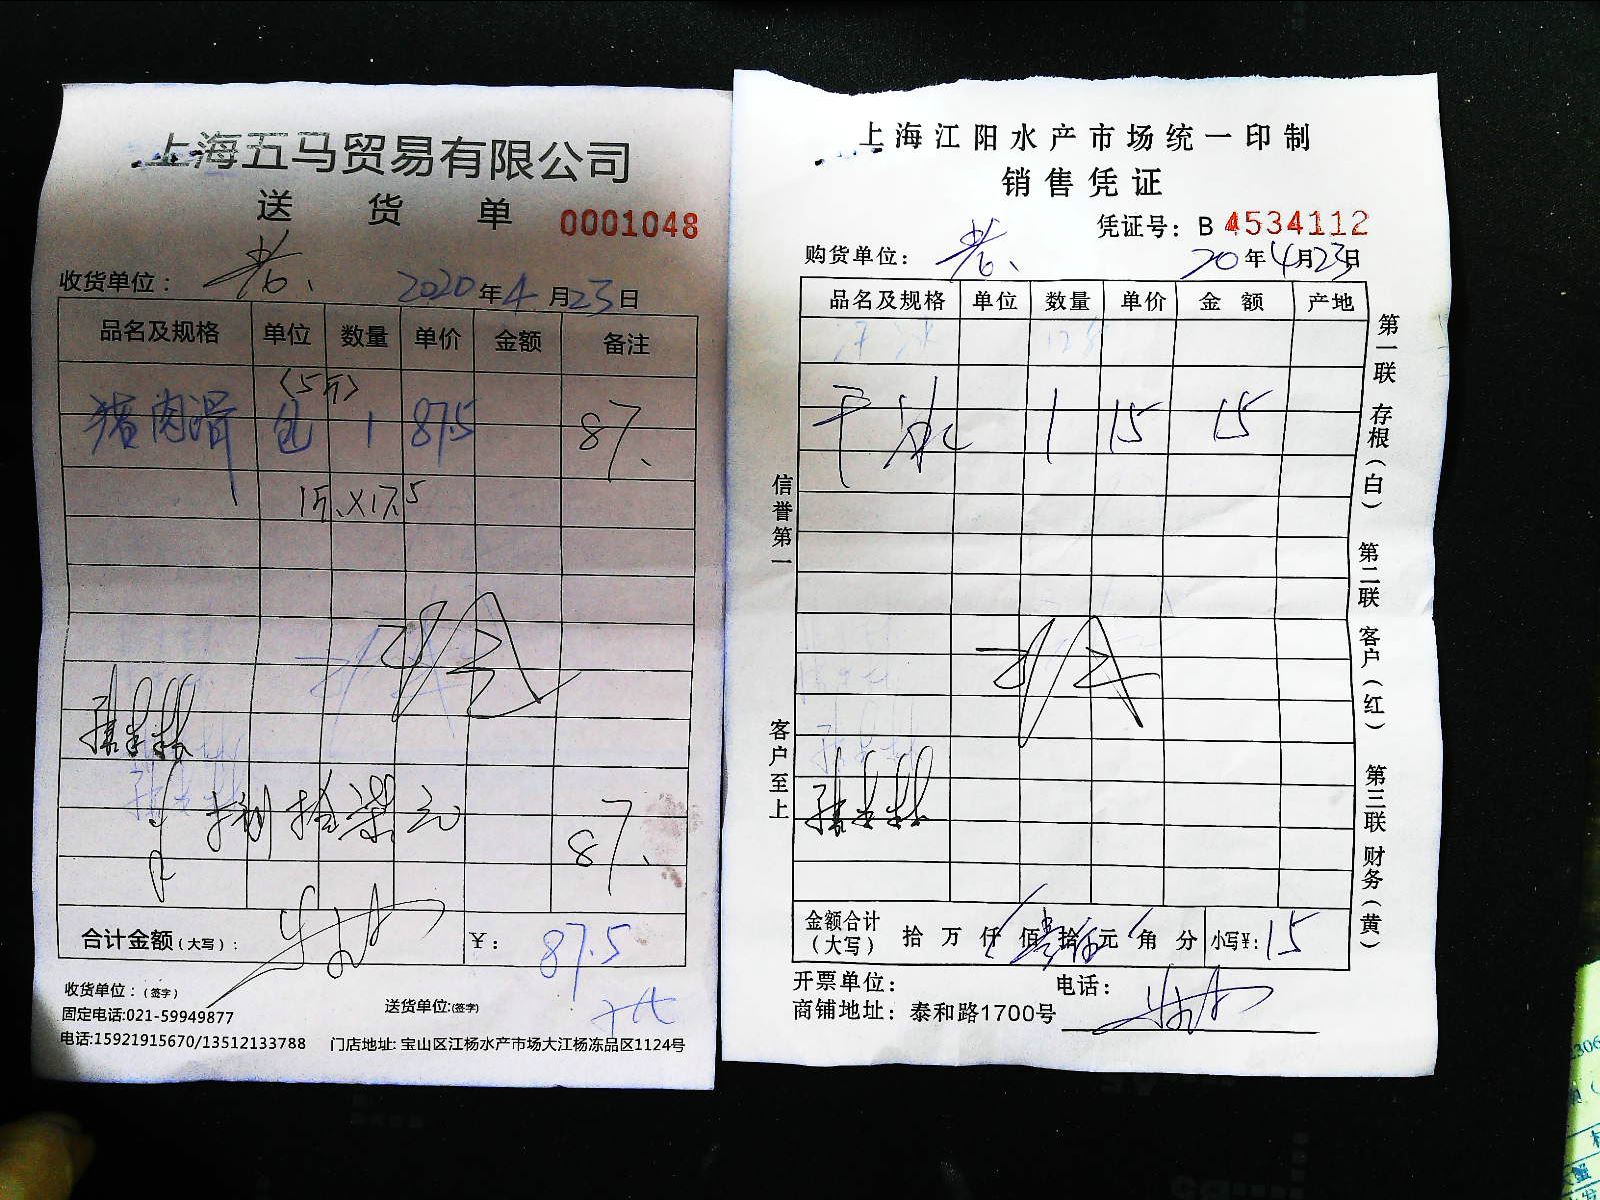 上海五马贸易有限公司
送货单 0001048
收货单位： 2020年4月23日
品名及规格 单位 数量 单价 金额 备注
(5斤)
猪肉滑 包 1 87.5 87.
1斤×17.5
捌拾柒元 87.
合计金额(大写)： ¥： 87.5
收货单位：(签字) 送货单位:(签字)
固定电话:021-59949877
电话:15921915670/13512133788 门店地址: 宝山区江杨水产市场大江杨冻品区1124号
上海江阳水产市场统一印制
销售凭证
凭证号： B 4534112
购货单位： 20年4月23日
品名及规格 单位 数量 单价 金额 产地
干冰 1 15 15
信誉第一 客户至上
第一联 存根(白) 第二联 客户(红) 第三联 财务(黄)
金额合计(大写) 拾 万 仟 佰 拾 元 角 分 小写¥: 15
开票单位： 电话：
商铺地址： 泰和路1700号